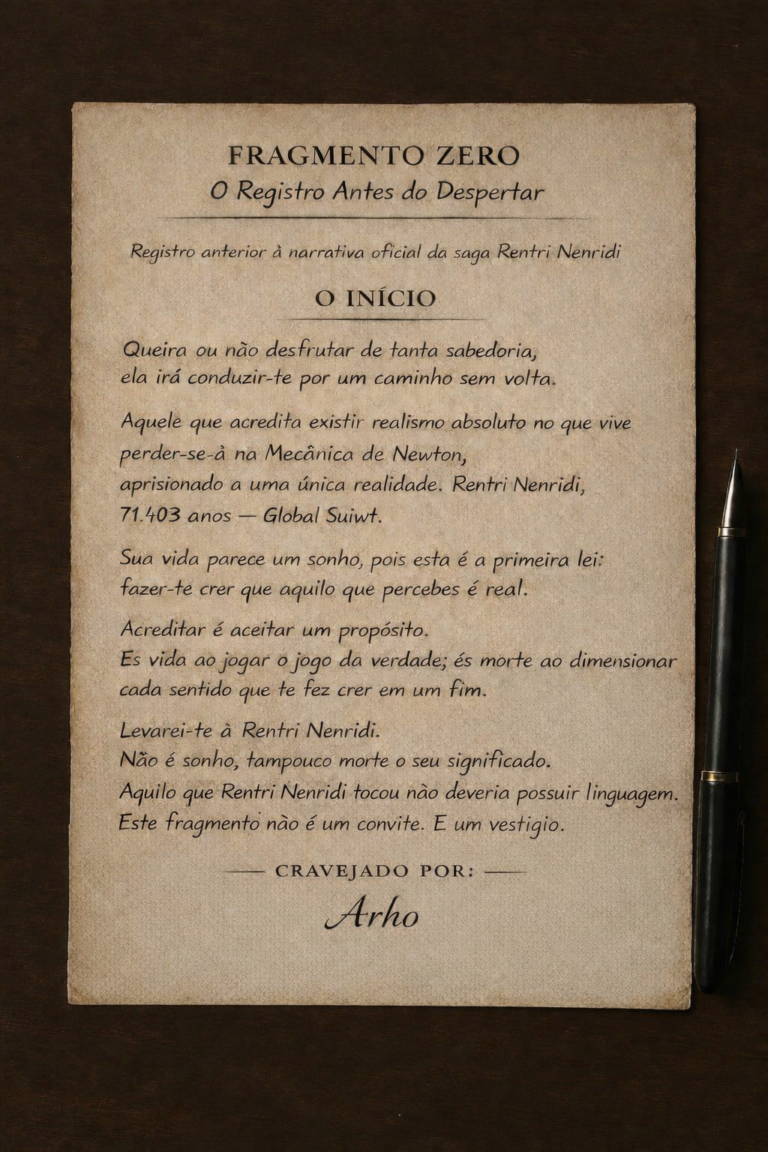 FRAGMENTO ZERO
O Registro Antes do Despertar
Registro anterior à narrativa oficial da saga Rentri Nenridi
O INÍCIO
Queira ou não desfrutar de tanta sabedoria,
ela irá conduzir-te por um caminho sem volta.
Aquele que acredita existir realismo absoluto no que vive
perder-se-à na Mecânica de Newton,
aprisionado a uma única realidade. Rentri Nenridi,
71.403 anos — Global Suiwt.
Sua vida parece um sonho, pois esta é a primeira lei:
fazer-te crer que aquilo que percebes é real.
Acreditar é aceitar um propósito.
Es vida ao jogar o jogo da verdade; és morte ao dimensionar
cada sentido que te fez crer em um fim.
Levarei-te à Rentri Nenridi.
Não é sonho, tampouco morte o seu significado.
Aquilo que Rentri Nenridi tocou não deveria possuir linguagem.
Este fragmento não é um convite. E um vestigio.
CRAVEJADO POR:
Arho